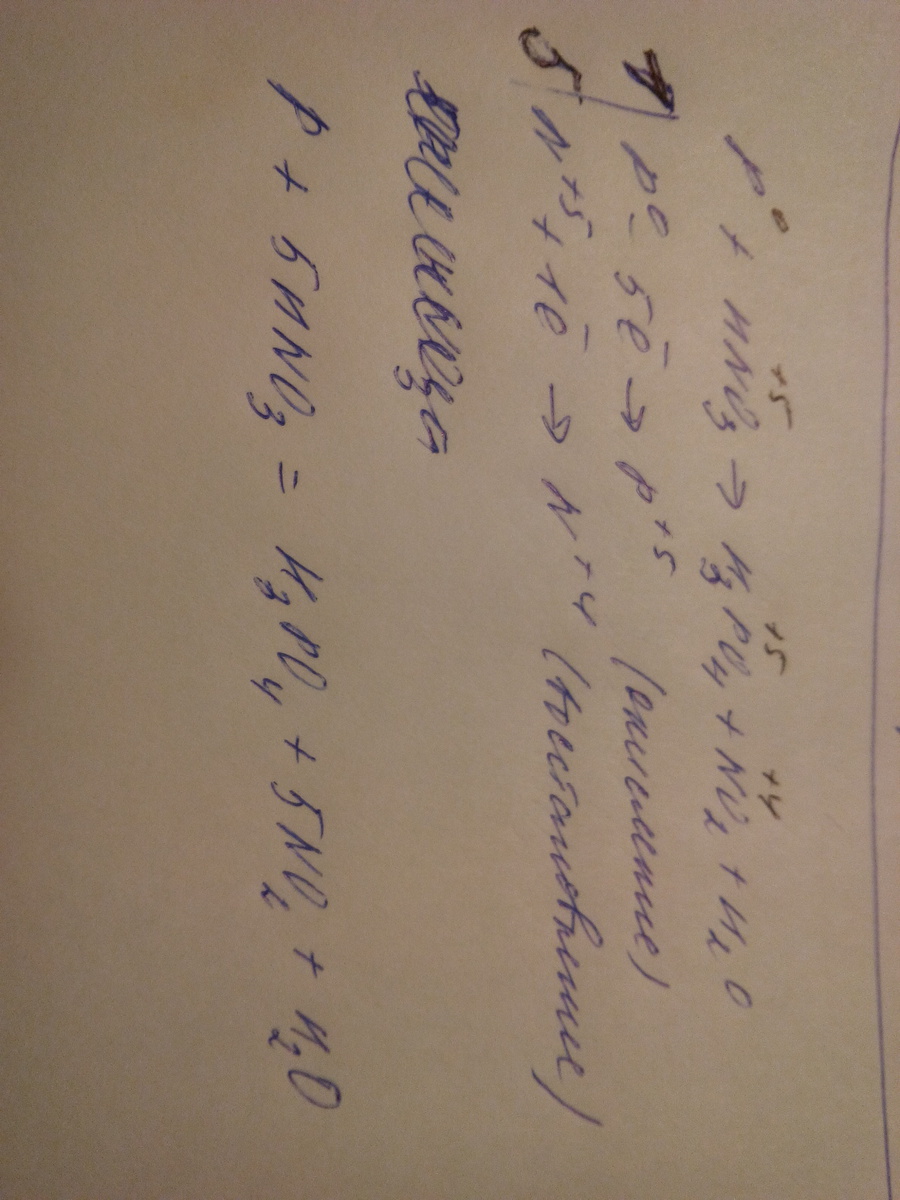 P⁰ + HN⁺⁵O₃ → H₃P⁺⁵O₄ + N⁺⁴O₂ + H₂O
1 | P⁰ - 5ē → P⁺⁵ (окисление)
5 | N⁺⁵ + 1ē → N⁺⁴ (восстановление)
P + 5HNO₃ = H₃PO₄ + 5NO₂ + H₂O